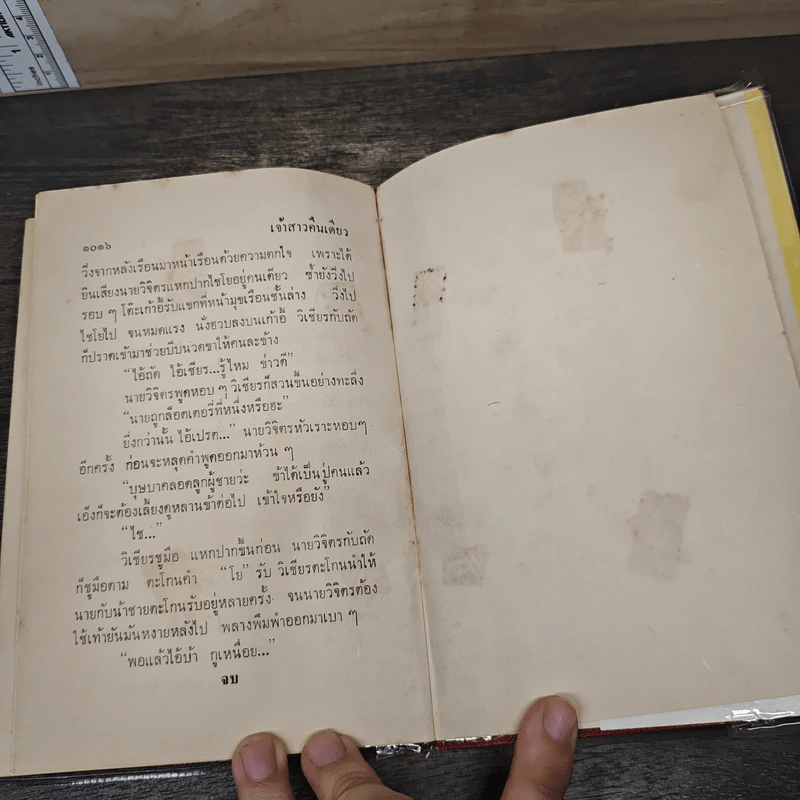 ๑๐๑๖
เจ้าสาวคืนเดียว
วิ่งจากหลังเรือนมาหน้าเรือนด้วยความตกใจ เพราะได้
ยินเสียงนายวิจิตรแหกปากไชโยอยู่คนเดียว ซ้ำยังวิ่งไป
รอบ ๆ โต๊ะเก้าอี้รับแขกที่หน้ามุขเรือนชั้นล่าง วิ่งไป
ไชโยไป จนหมดแรง นั่งฮวบลงบนเก้าอี้ วิเชียรกับถัด
ก็ปราดเข้ามาช่วยบีบนวดขาให้คนละข้าง
“ไอ้ถัด ไอ้เชียร...รู้ไหม ข่าวดี”
นายวิจิตรพูดหอบ ๆ วิเชียรก็สวนขึ้นอย่างทะลึ่ง
“นายถูกล็อตเตอรี่ที่หนึ่งหรือฮะ”
ยิ่งกว่านั้น ไอ้เปรต...” นายวิจิตรหัวเราะหอบๆ
อีกครั้ง ก่อนจะหลุดคำพูดออกมาห้วน ๆ
“บุษบาคลอดลูกผู้ชายว่ะ ข้าได้เป็นปู่คนแล้ว
เอ็งก็จะต้องเลี้ยงดูหลานข้าต่อไป เข้าใจหรือยัง”
“ไช...”
วิเชียรชูมือ แหกปากขึ้นก่อน นายวิจิตรกับถัด
ก็ชูมือตาม ตะโกนคำ “โย” รับ วิเชียรตะโกนนำให้
นายกับน้าชายตะโกนรับอยู่หลายครั้ง จนนายวิจิตรต้อง
ใช้เท้ายันมันหงายหลังไป พลางพึมพำออกมาเบา ๆ
“พอแล้วไอ้บ้า กูเหนื่อย...”
จบ